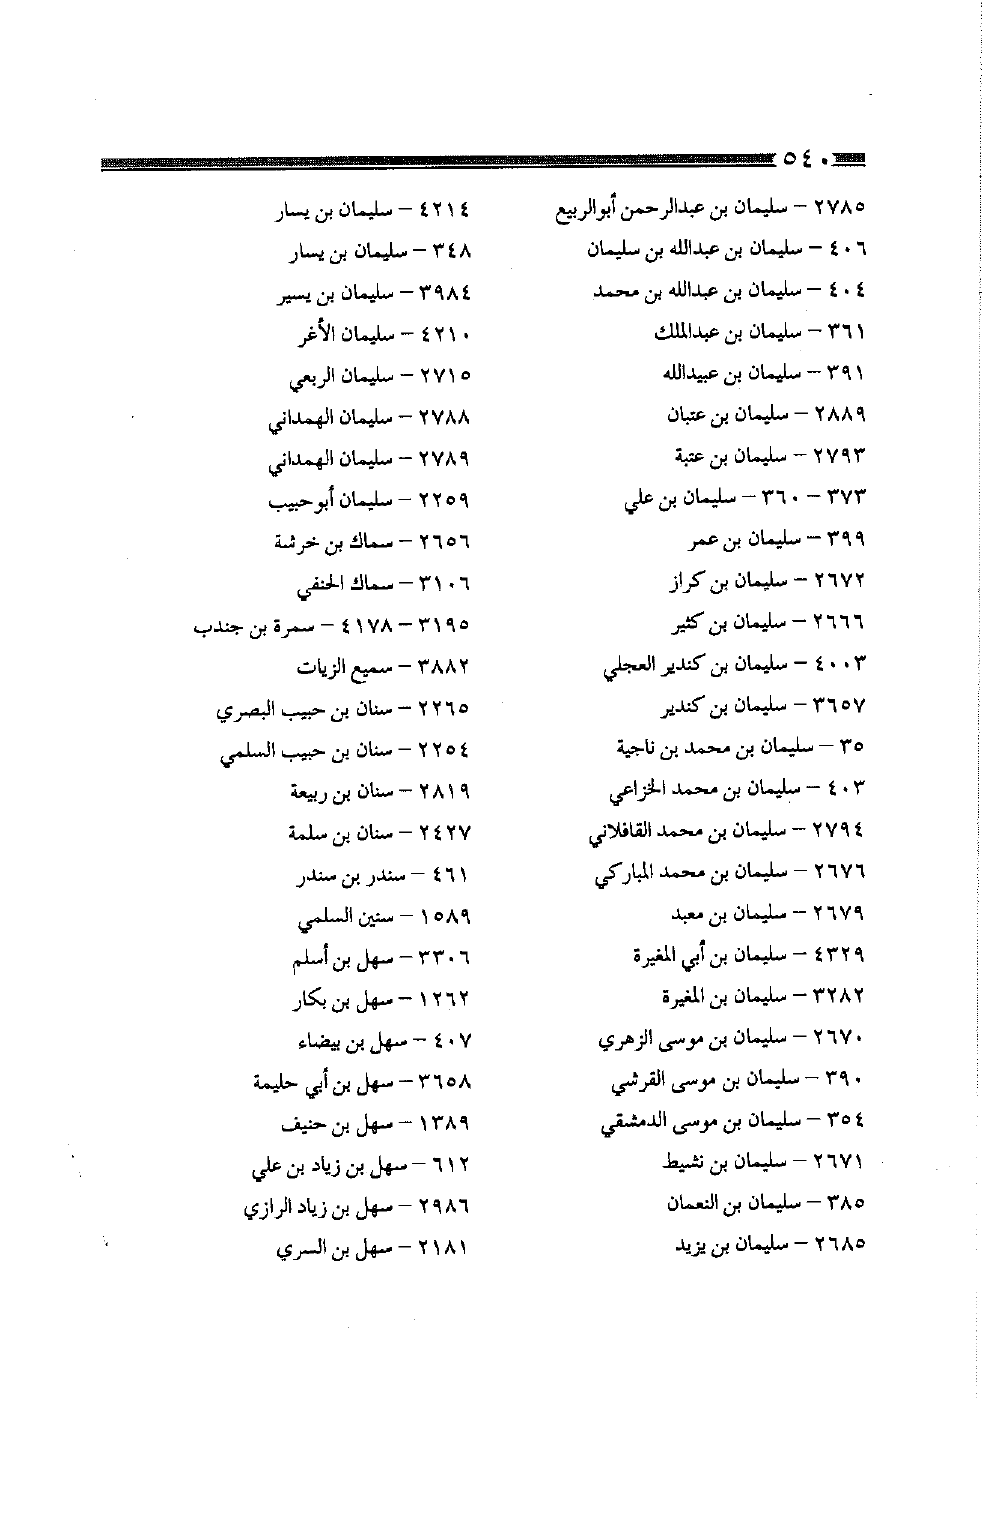 ٥٤٠
٢٧٨٥ – سليمان بن عبدالرحمن أبوالربيع
٤٠٦ – سليمان بن عبدالله بن سليمان
٤٠٤ – سليمان بن عبدالله بن محمد
٣٦١ – سليمان بن عبدالملك
٣٩١ – سليمان بن عبيدالله
٢٨٨٩ – سليمان بن عتبان
٢٧٩٣ – سليمان بن عتبة
٣٧٣ – ٣٦٠ – سليمان بن علي
٣٩٩ – سليمان بن عمر
٢٦٧٢ – سليمان بن كراز
٢٦٦٦ – سليمان بن كثير
٤٠٠٣ – سليمان بن كندير العجلي
٣٦٥٧ – سليمان بن كندير
٣٥ – سليمان بن محمد بن ناجية
٤٠٣ – سليمان بن محمد الخزاعي
٢٧٩٤ – سليمان بن محمد القافلاني
٢٦٧٦ – سليمان بن محمد المباركي
٢٦٧٩ – سليمان بن معبد
٤٣٢٩ – سليمان بن أبي المغيرة
٣٢٨٢ – سليمان بن المغيرة
٢٦٧٠ – سليمان بن موسى الزهري
٣٩٠ – سليمان بن موسى القرشي
٣٥٤ – سليمان بن موسى الدمشقي
٢٦٧١ – سليمان بن نشيط
٣٨٥ – سليمان بن النعمان
٢٦٨٥ – سليمان بن يزيد
٤٢١٤ – سليمان بن يسار
٣٤٨ – سليمان بن يسار
٣٩٨٤ – سليمان بن يسير
٤٢١٠ – سليمان الأغر
٢٧١٥ – سليمان الربعي
٢٧٨٨ – سليمان الهمداني
٢٧٨٩ – سليمان الهمداني
٢٢٥٩ – سليمان أبوحبيب
٢٦٥٦ – سماك بن خرشة
٣١٠٦ – سماك الحنفي
٣١٩٥ – ٤١٧٨ – سمرة بن جندب
٣٨٨٢ – سميع الزيات
٢٢٦٥ – سنان بن حبيب البصري
٢٢٥٤ – سنان بن حبيب السلمي
٢٨١٩ – سنان بن ربيعة
٢٤٢٧ – سنان بن سلمة
٤٦١ – سندر بن سندر
١٥٨٩ – سنين السلمي
٣٣٠٦ – سهل بن أسلم
١٢٦٢ – سهل بن بكار
٤٠٧ – سهل بن بيضاء
٣٦٥٨ – سهل بن أبي حليمة
١٣٨٩ – سهل بن حنيف
٦١٢ – سهل بن زياد بن علي
٢٩٨٦ – سهل بن زياد الرازي
٢١٨١ – سهل بن السري